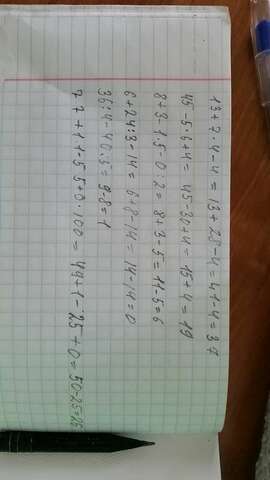 13+7·4-4=13+28-4=41-4=37
45-5·6+4=45-30+4=15+4=19
8+3-1·5-0:2=8+3-5=11-5=6
6+24:3-14=6+8-14=14-14=0
36:4-40:5=9-8=1
7·7+1·1-5·5+0·100=49+1-25+0=50-25=25